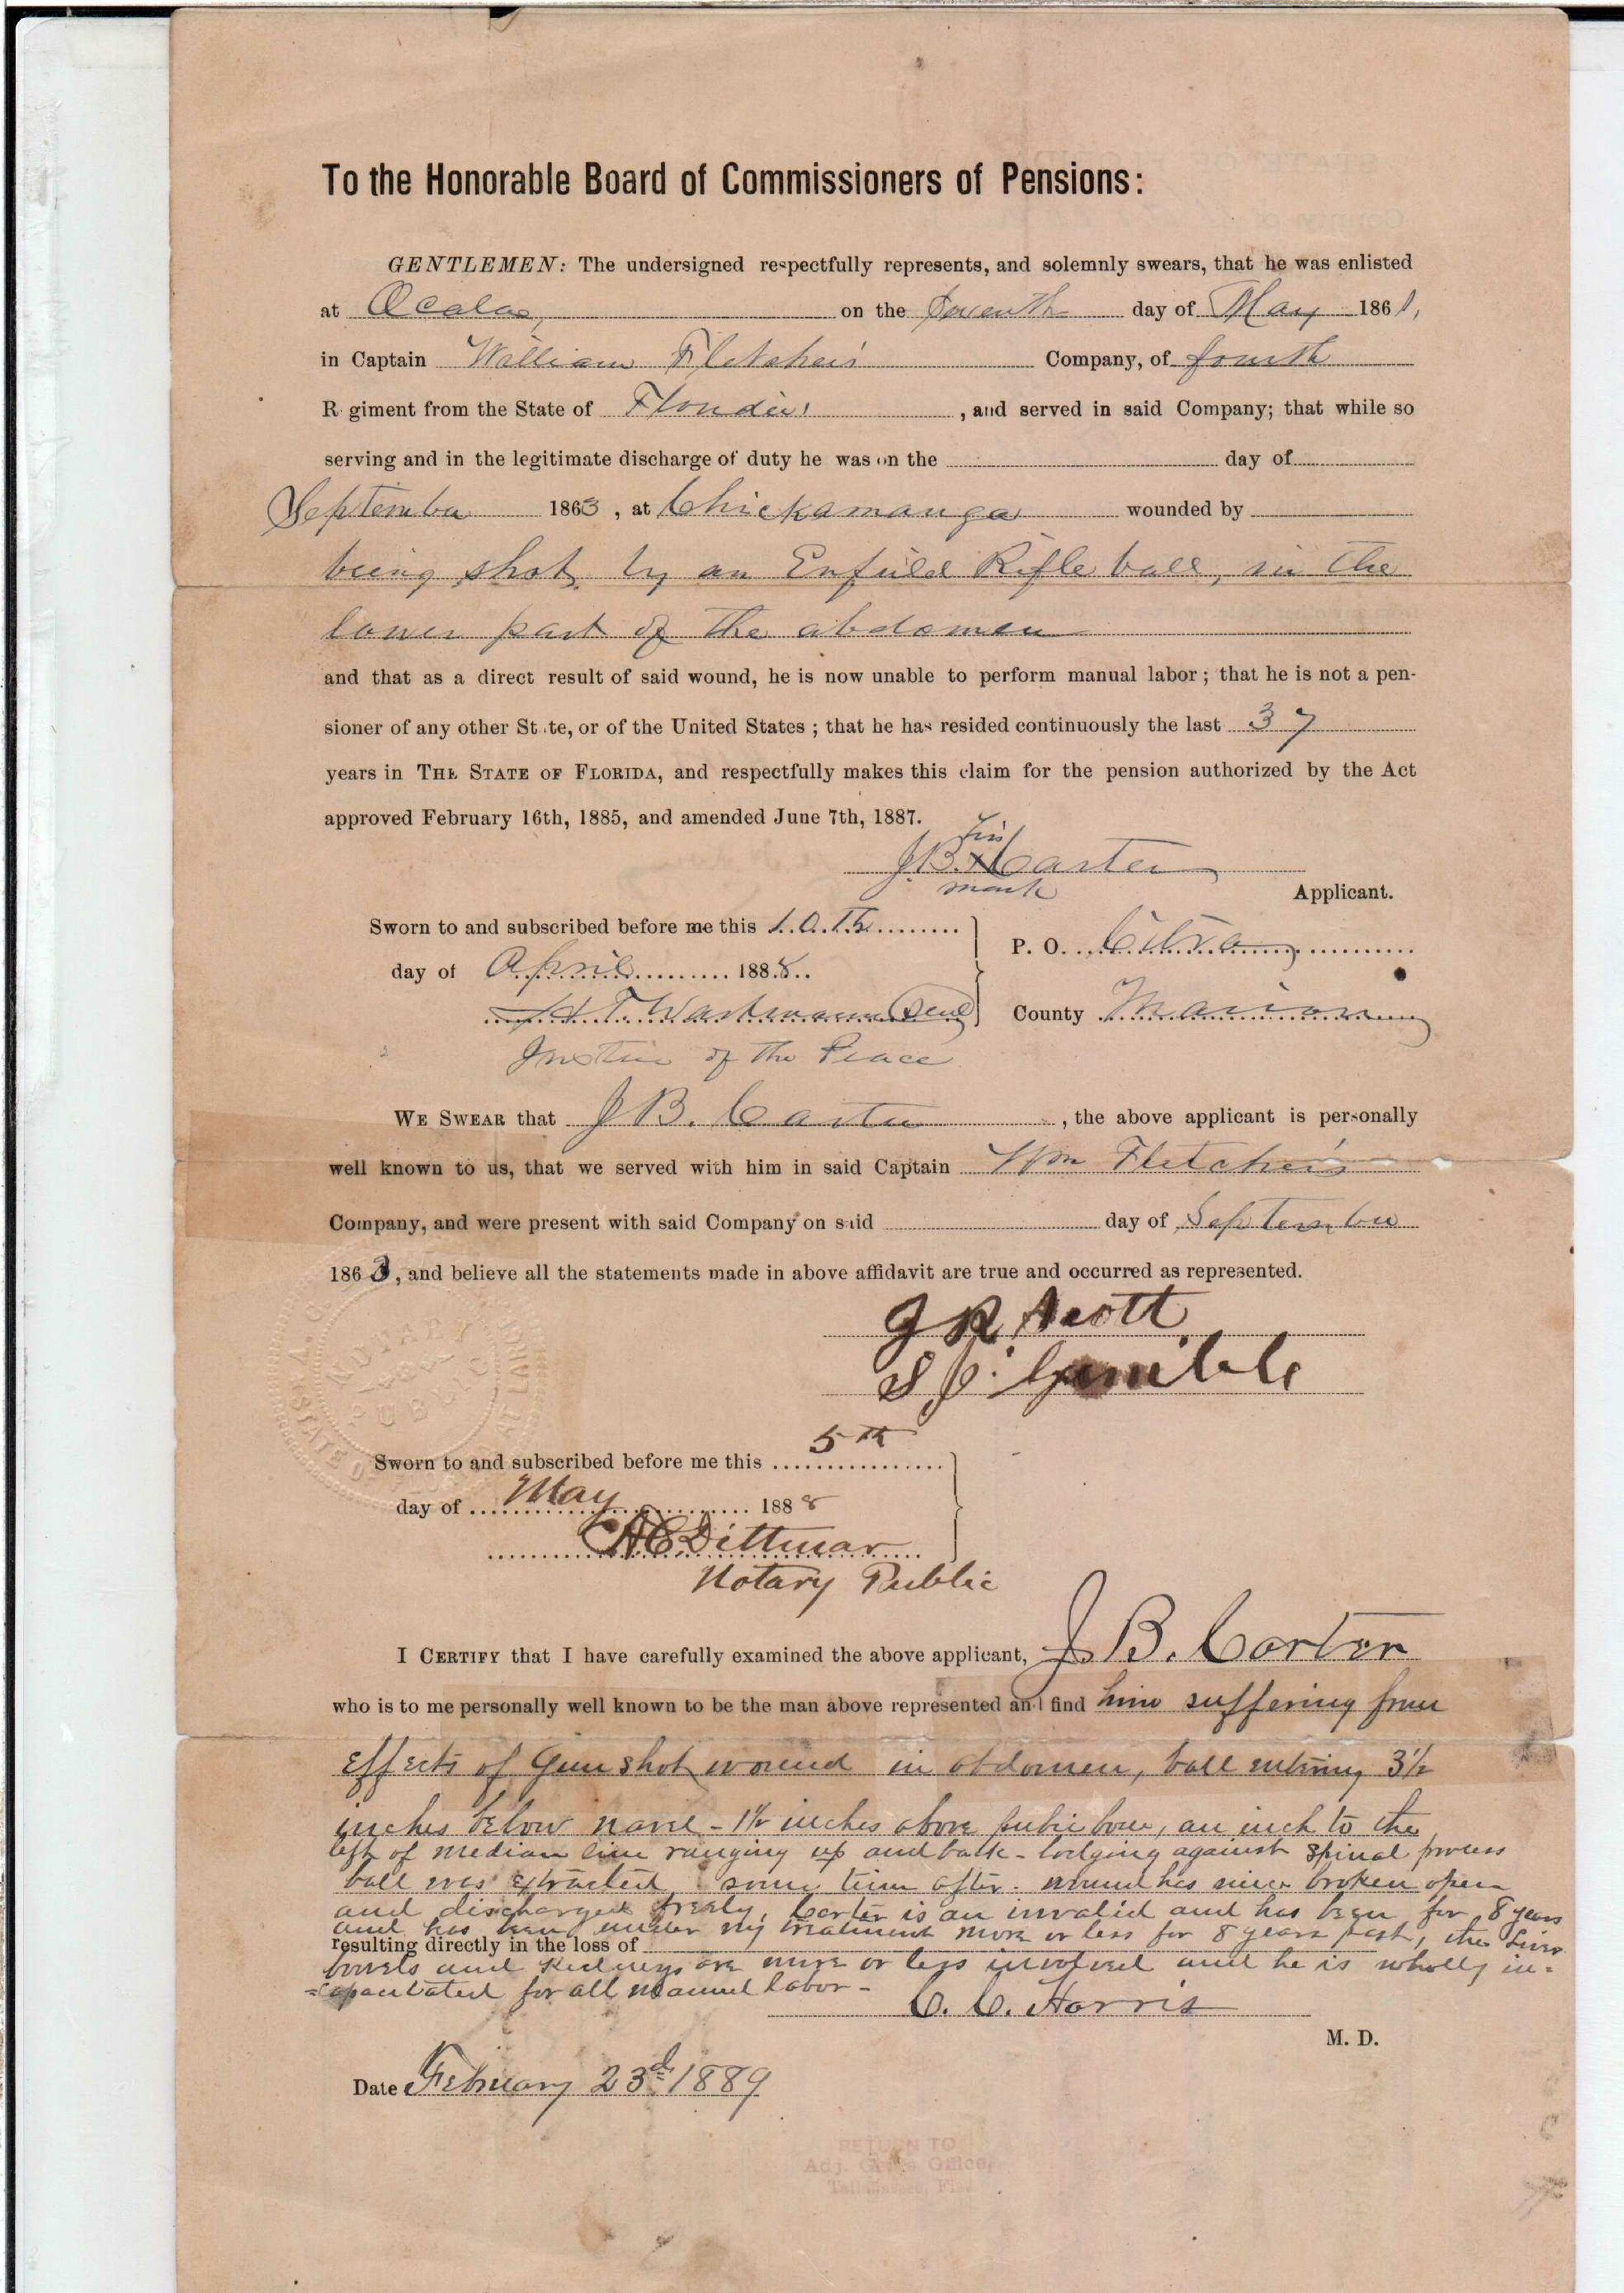 To the Honorable Board of Commissioners of Pensions:
GENTLEMEN: The undersigned respectfully represents, and solemnly swears, that he was enlisted
at Ocala, on the Seventh day of May 1861,
in Captain William Fletcher's Company, of fourth
R giment from the State of Florida, and served in said Company; that while so
serving and in the legitimate discharge of duty he was on the day of
September 1863, at Chickamauga wounded by
being shot by an Enfield Rifle ball, in the
lower part of the abdomen
and that as a direct result of said wound, he is now unable to perform manual labor; that he is not a pen-
sioner of any other St te, or of the United States; that he has resided continuously the last 37
years in THE STATE OF FLORIDA, and respectfully makes this claim for the pension authorized by the Act
approved February 16th, 1885, and amended June 7th, 1887.
his
J.B. x Carter
mark
Applicant.
Sworn to and subscribed before me this 10th
day of April 1888
P. O. Citra
(Seal)
County Marion
Justice of the Peace
WE SWEAR that J B. Carter, the above applicant is personally
well known to us, that we served with him in said Captain Wm Fletcher's
Company, and were present with said Company on said day of September
1863, and believe all the statements made in above affidavit are true and occurred as represented.
J R Scott
S. P. Gamble
NOTARY
PUBLIC
Sworn to and subscribed before me this 5th
day of May 1888
A C Dittmar
Notary Public
I CERTIFY that I have carefully examined the above applicant, J. B. Carter
who is to me personally well known to be the man above represented and find him suffering from
effects of Gun shot wound in abdomen, ball entering 3½
inches below navel - 1½ inches above pubic bone, an inch to the
left of median line ranging up and back - lodging against spinal process
ball was extracted some time after. wound has since broken open
and discharged freely, Carter is an invalid and has been for 8 years
and has been under my treatment more or less for 8 years past, the liver
resulting directly in the loss of
bowels and Kidneys are more or less involved and he is wholly in=
=capacitated for all manual labor -
C. C. Harris
M. D.
Date February 23d 1889
RETURN TO
Adj. Office,
Tallahassee, Fla.